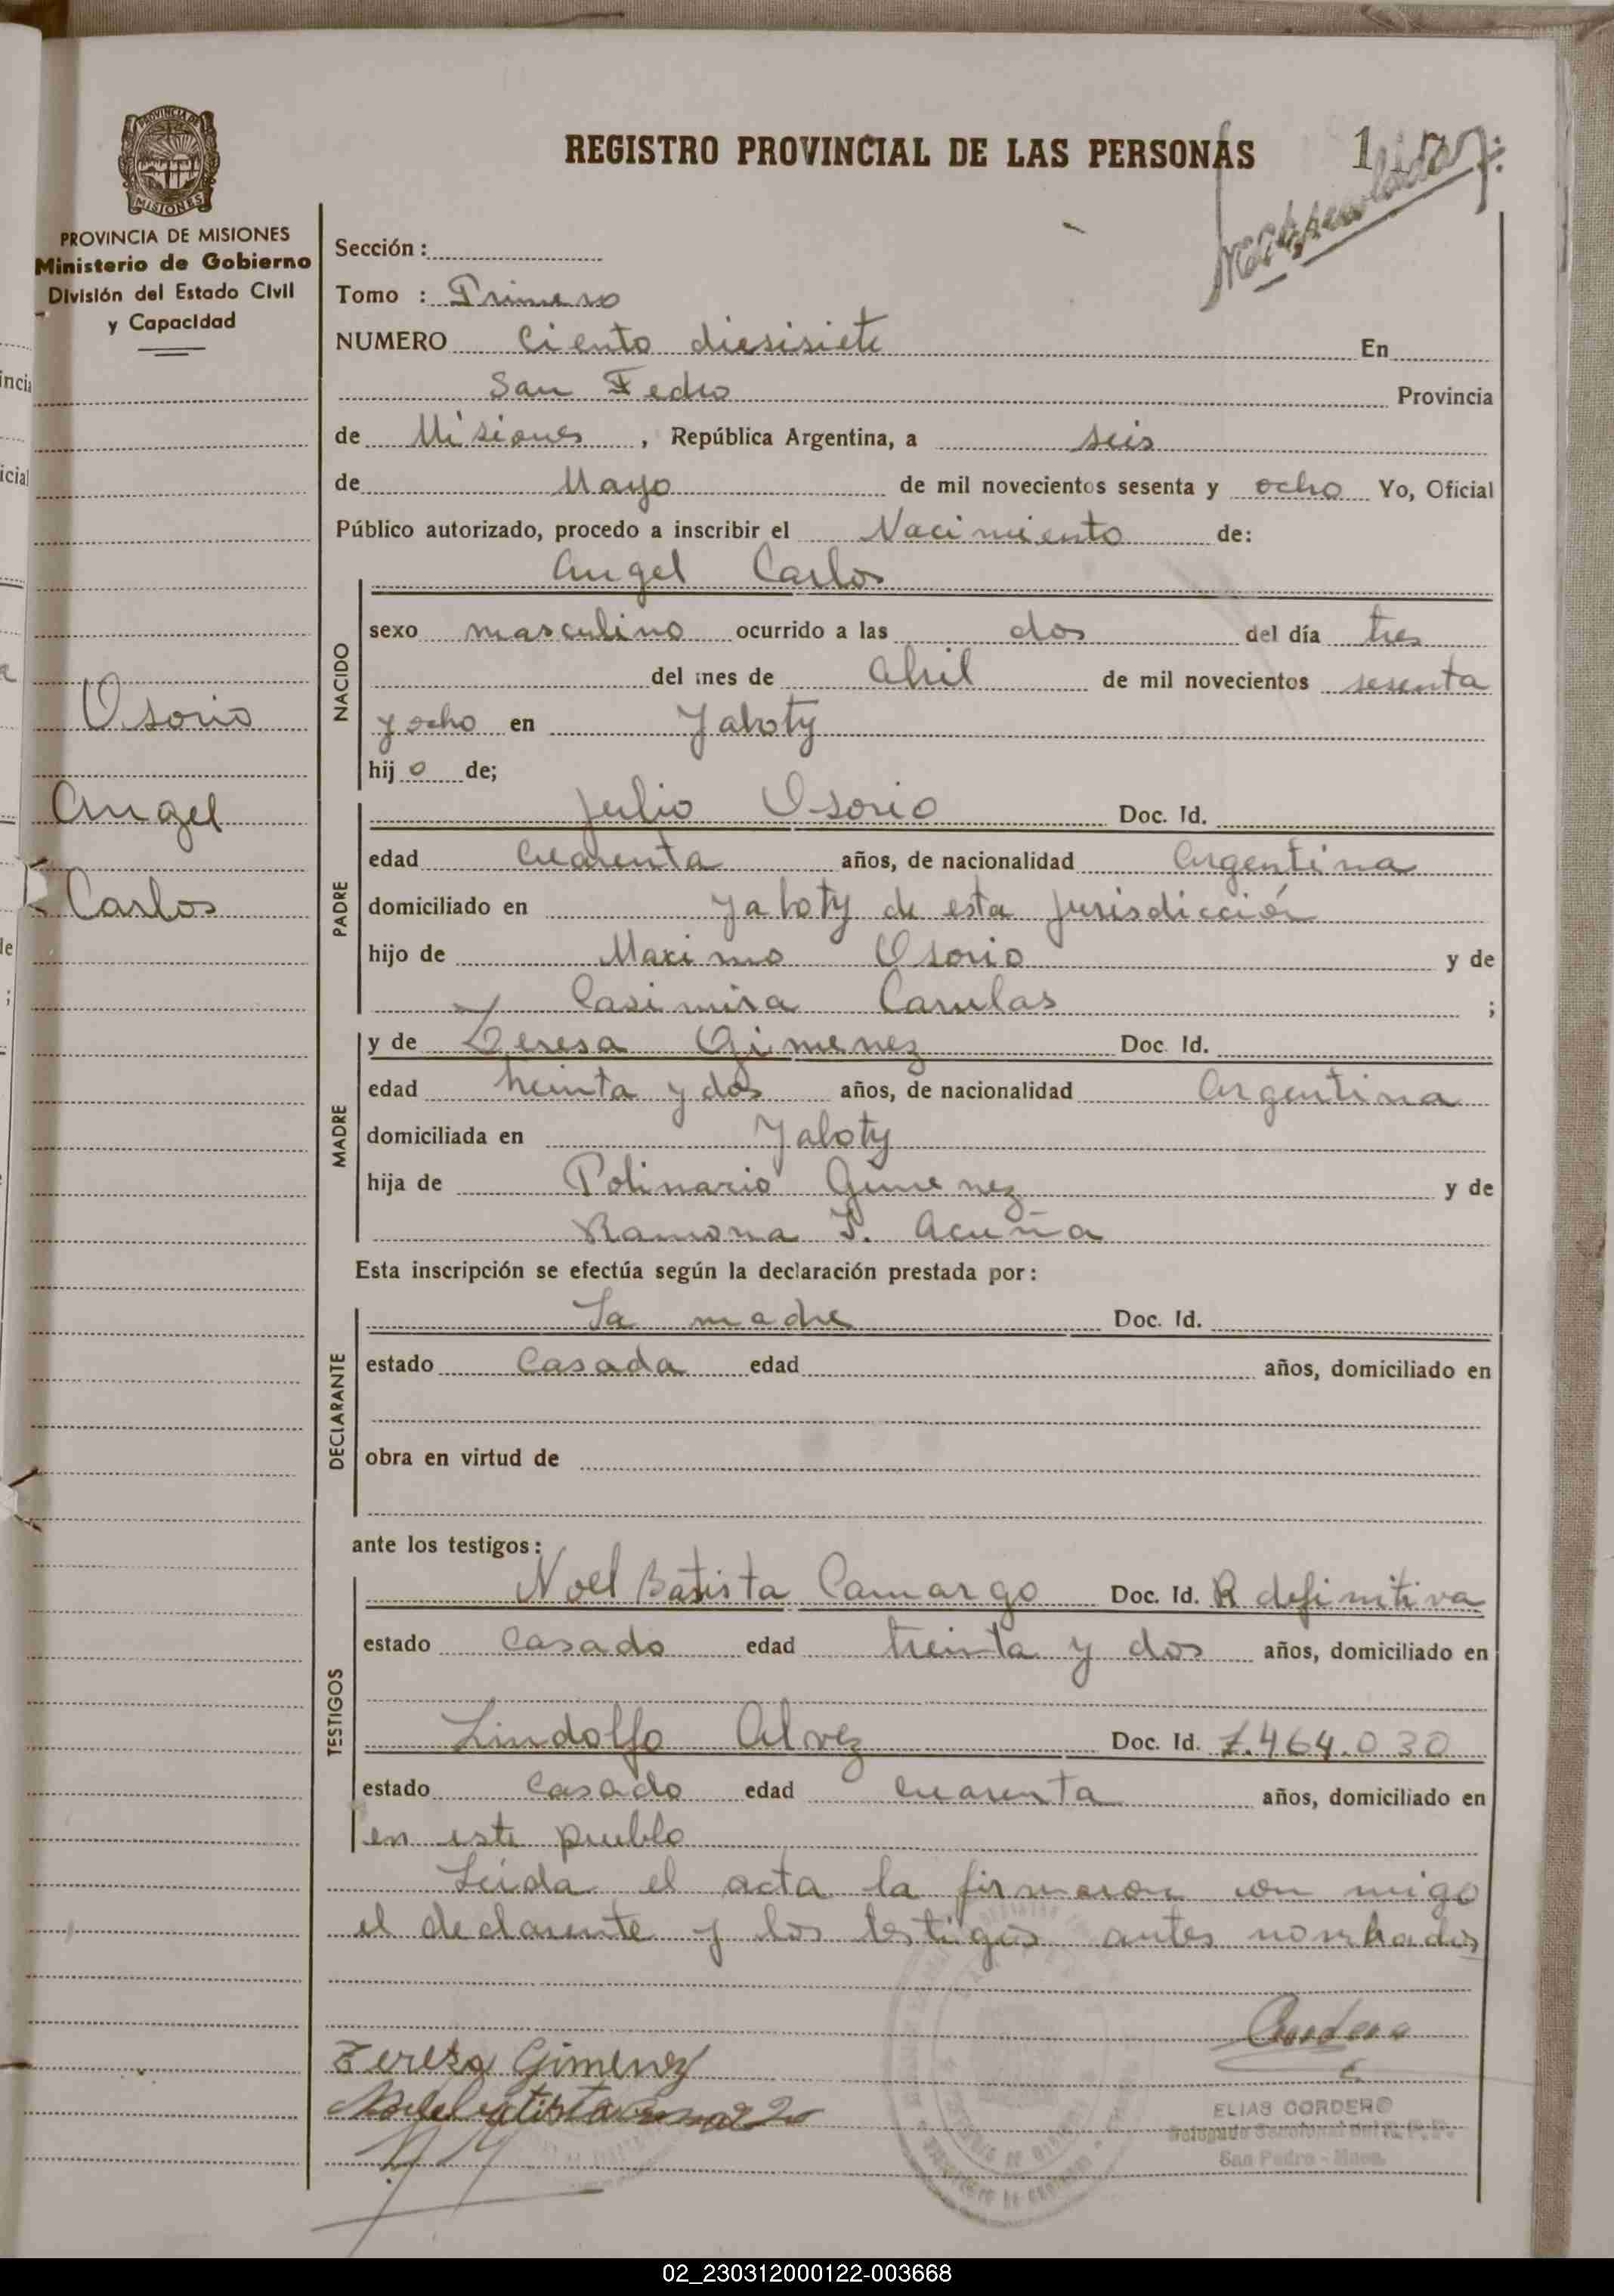 REGISTRO PROVINCIAL DE LAS PERSONAS
PROVINCIA DE MISIONES
Ministerio de Gobierno
División del Estado Civil
y Capacidad
Osorio
Angel
Carlos
Sección :
Tomo : Primero
NUMERO Ciento diesisiete En
San Pedro Provincia
de Misiones , República Argentina, a seis
de Mayo de mil novecientos sesenta y ocho Yo, Oficial
Público autorizado, procedo a inscribir el Nacimiento de:
Angel Carlos
NACIDO
sexo masculino ocurrido a las dos del día tres
del mes de Abril de mil novecientos sesenta
y ocho en Yaboty
hij o de;
PADRE
Julio Osorio Doc. Id.
edad Cuarenta años, de nacionalidad Argentina
domiciliado en Yaboty de esta Jurisdicción
hijo de Maximo Osorio y de
Casimira Canulas ;
MADRE
y de Teresa Gimenez Doc. Id.
edad treinta y dos años, de nacionalidad Argentina
domiciliada en Yaboty
hija de Polinario Gimenez y de
Ramona I. Acuña
Esta inscripción se efectúa según la declaración prestada por :
DECLARANTE
La madre Doc. Id.
estado Casada edad años, domiciliado en
obra en virtud de
ante los testigos :
TESTIGOS
Noel Batista Camargo Doc. Id. R definitiva
estado Casado edad treinta y dos años, domiciliado en
Lindolfo Alvez Doc. Id. 7.464.030
estado Casado edad Cuarenta años, domiciliado en
en este pueblo
Leida el acta la firmaron con migo
el declarente y los testigos antes nombados
Tereza Gimenez
ELIAS CORDERO
San Pedro - Mnes.
02_230312000122-003668